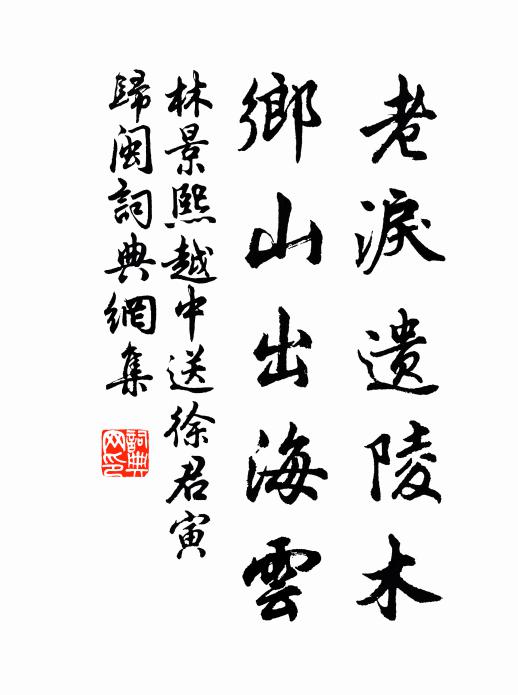 老淚遺陵木
鄉山出海雲
林景熙越中送徐君寅
歸閩詞典網集
詞典
网印